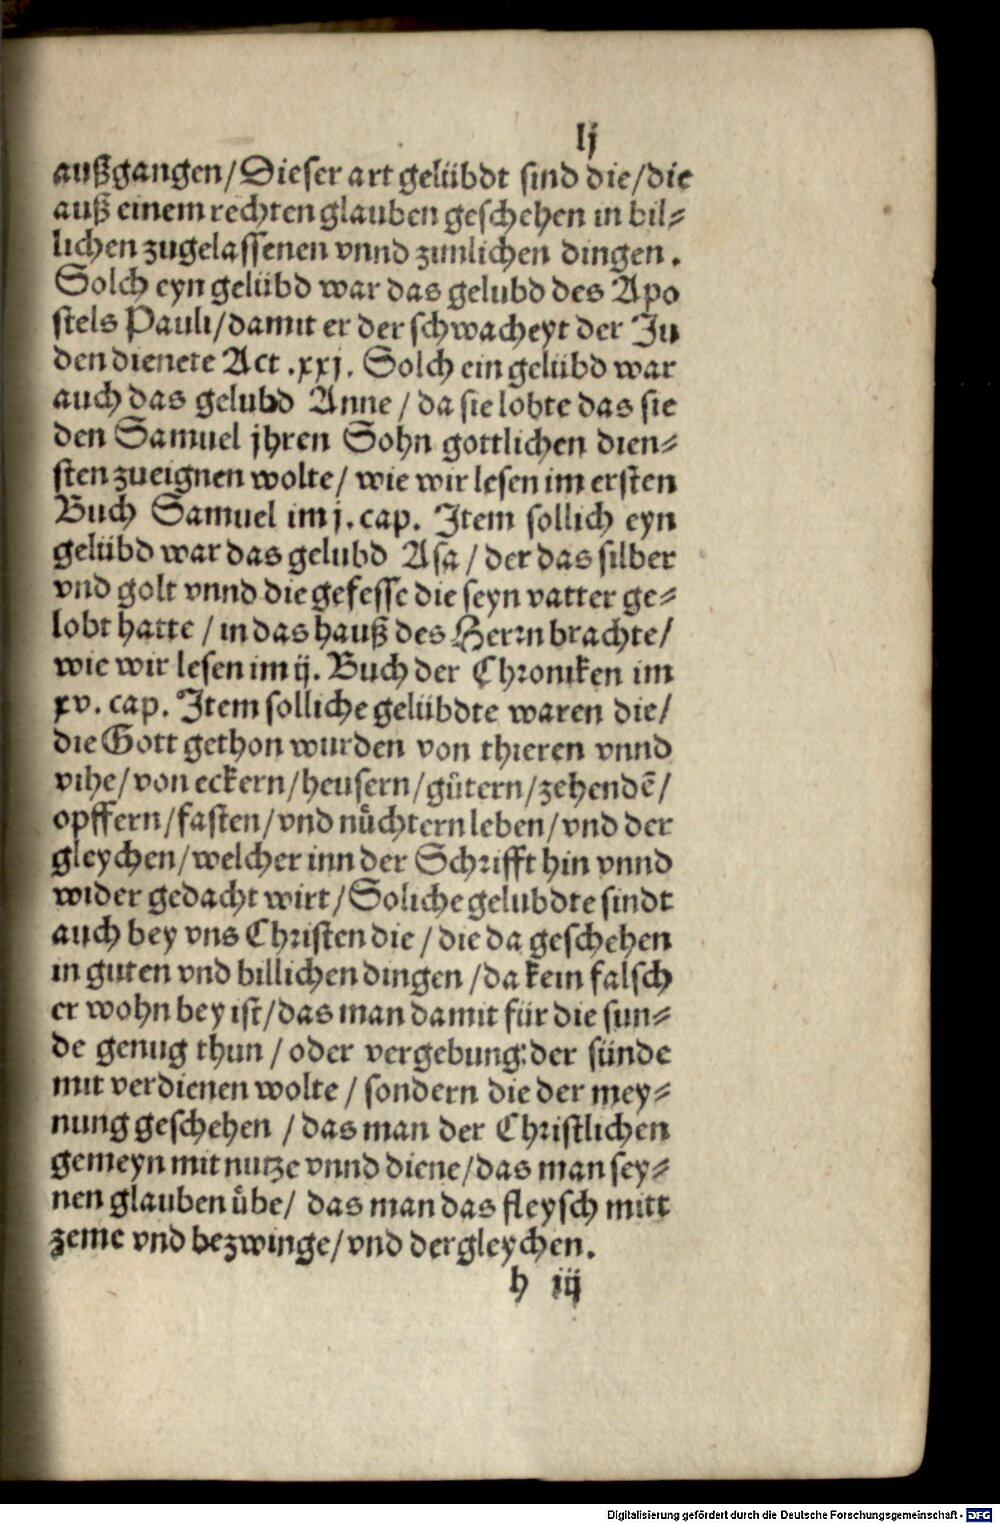 lj
außgangen/Dieser art gelübdt sind die/die
auß einem rechten glauben geschehen in bil⸗
lichen zugelassenen vnnd zimlichen dingen.
Solch eyn gelübd war das gelubd des Apo
stels Pauli/damit er der schwacheyt der Ju
den dienete Act.xxj. Solch ein gelübd war
auch das gelubd Anne/da sie lobte das sie
den Samuel jhren Sohn gottlichen dien⸗
sten zueignen wolte/ wie wir lesen im ersten
Buch Samuel im j.cap. Item sollich eyn
gelübd war das gelubd Asa/der das silber
vnd golt vnnd die gefesse die seyn vatter ge⸗
lobt hatte/in das hauß des Herrn brachte/
wie wir lesen im ij. Buch der Chroniken im
xv. cap. Item solliche gelübdte waren die/
die Gott gethon wurden von thieren vnnd
vihe/von eckern/heusern/gůtern/zehendē/
opffern/fasten/vnd nůchtern leben/vnd der
gleychen/welcher inn der Schrifft hin vnnd
wider gedacht wirt/Soliche gelubdte sindt
auch bey vns Christen die/die da geschehen
in guten vnd billichen dingen/da kein falsch
er wohn bey ist/das man damit für die sun⸗
de genug thun/oder vergebung:der sünde
mit verdienen wolte/sondern die der mey⸗
nung geschehen/das man der Christlichen
gemeyn mit nutze vnnd diene/das man sey⸗
nen glauben ůbe/ das man das fleysch mitt
zeme vnd bezwinge/vnd dergleychen.
h iij
Digitalisierung gefördert durch die Deutsche Forschungsgemeinschaft - DFG